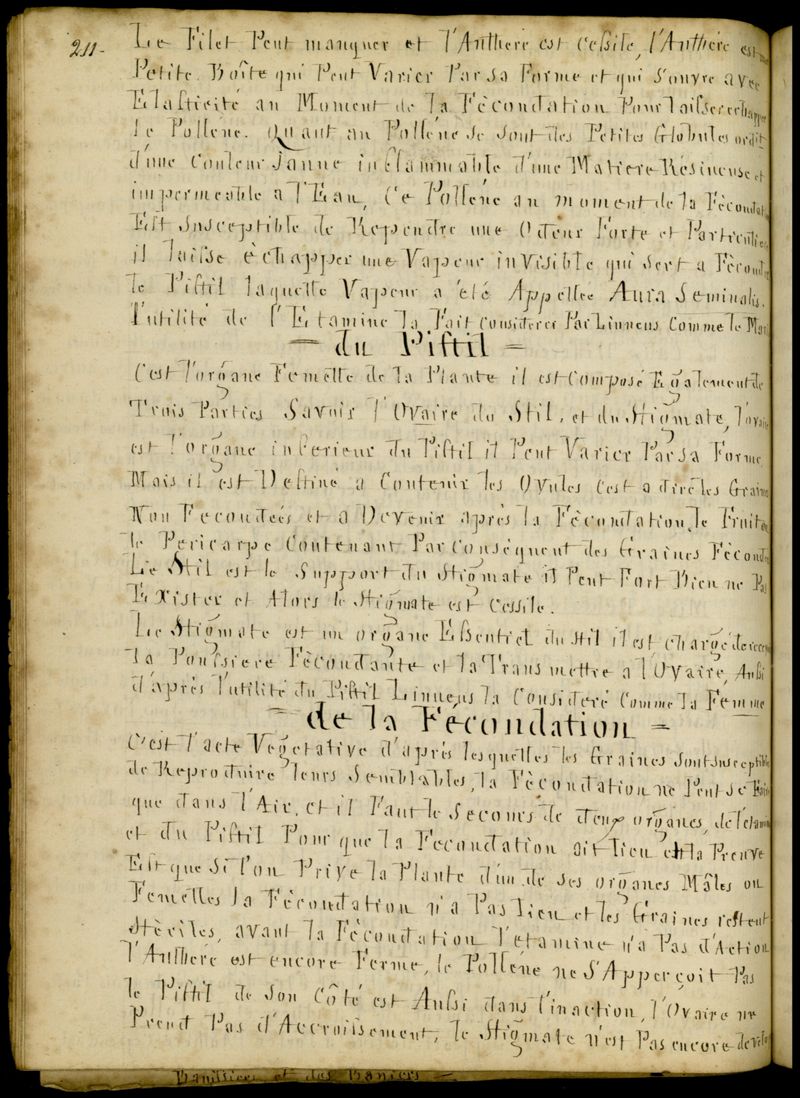 211-
Le Filet Peut manquer et l'Anthere est Cessile, l'Anthere est
Petite Boîte qui Peut Varier Par Sa Forme et qui S'ouvre avec
Elasticité au Moment de la Fècondation Pour laisser echapper
le Pollène. Quant au Pollène Se Sont des Petites Globules ordit
d'une Couleur Janne inflammable d'une Matiere Résineuse et
impermeable a l'Eau, Ce Pollène au moment de la Fècondat
Est Susceptible de Rependre une Odeur Forte et Particulier
il laisse èchapper une Vapeur invisible qui Sert a Fèconder
le Pistil laquelle Vapeur a été Appellée Aura Seminalis.
l'utilité de l'Etamine la Fait Considerer Par Linneus Comme le Mal
— du Pistil —
C'est l'organe Femelle de la Plante il est Composé Egalement de
Trois Parties Savoir l'Ovaire du Stil, et du Stigmate, l'ovaire
est l'organe inferieur du Pistil il Peut Varier Par Sa Forme
Mais il est Destiné a Contenir les Ovules C'est a dire les Graines
Non Fecondées et a Devenir après la Fècondation, le Fruit ou
le Pericarpe Contenant Par Consèquent des Graines Fècondes
Le Stil est le Support du Stigmate il Peut Fort Bien ne Pas
Exister et Alors le Stigmate est Cessile.
Le Stigmate est un organe Essentiel du Stil il est Chargé de recev
la Poussiere Fècondante et la Transmettre a l'Ovaire, Aussi
d'après l'utilité du Pistil Linneus la Considéré Comme la Fémme
— de la Fécondation —
C'est l'acte Vègetative d'après lesquelles les Graines Sont Susceptible
de Reproduire leurs Semblables, la Fècondation ne Peut Se Faire
que dans l'Air, et il Faut le Secours de deux organes, de l'etamine
et du Pistil Pour que la Fecondation ait lieu et la Preuve
Est que Si l'on Prive la Plante d'un de Ses organes Mâles ou
Femelles la Fècondation n'a Pas lieu et les Graines restent
Stèriles, avant la Fècondation l'etamine n'a Pas d'Action
l'Anthere est encore Ferme, le Pollène ne S'Apperçoit Pas
le Pistil de Son Côté est Aussi dans l'inaction, l'Ovaire ne
Prend Pas d'Accroissement, le Stigmate n'est Pas encore
et des